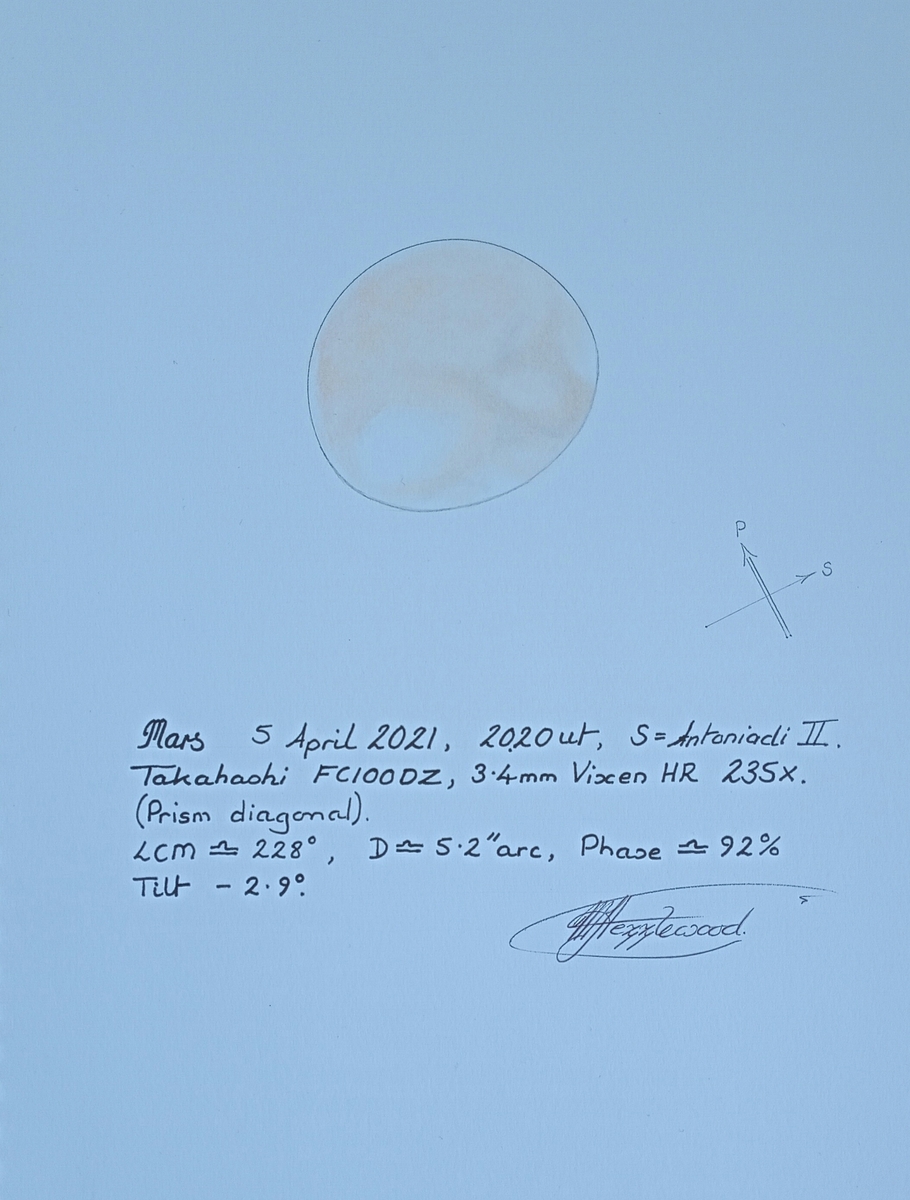 P
S
Mars 5 April 2021, 2020ut, S=Antoniadi II.
Takahashi FC100DZ, 3.4mm Vixen HR 235x.
(Prism diagonal).
LCM ≏ 228°, D≏ 5.2"arc, Phase ≏ 92%
Tilt - 2.9°.